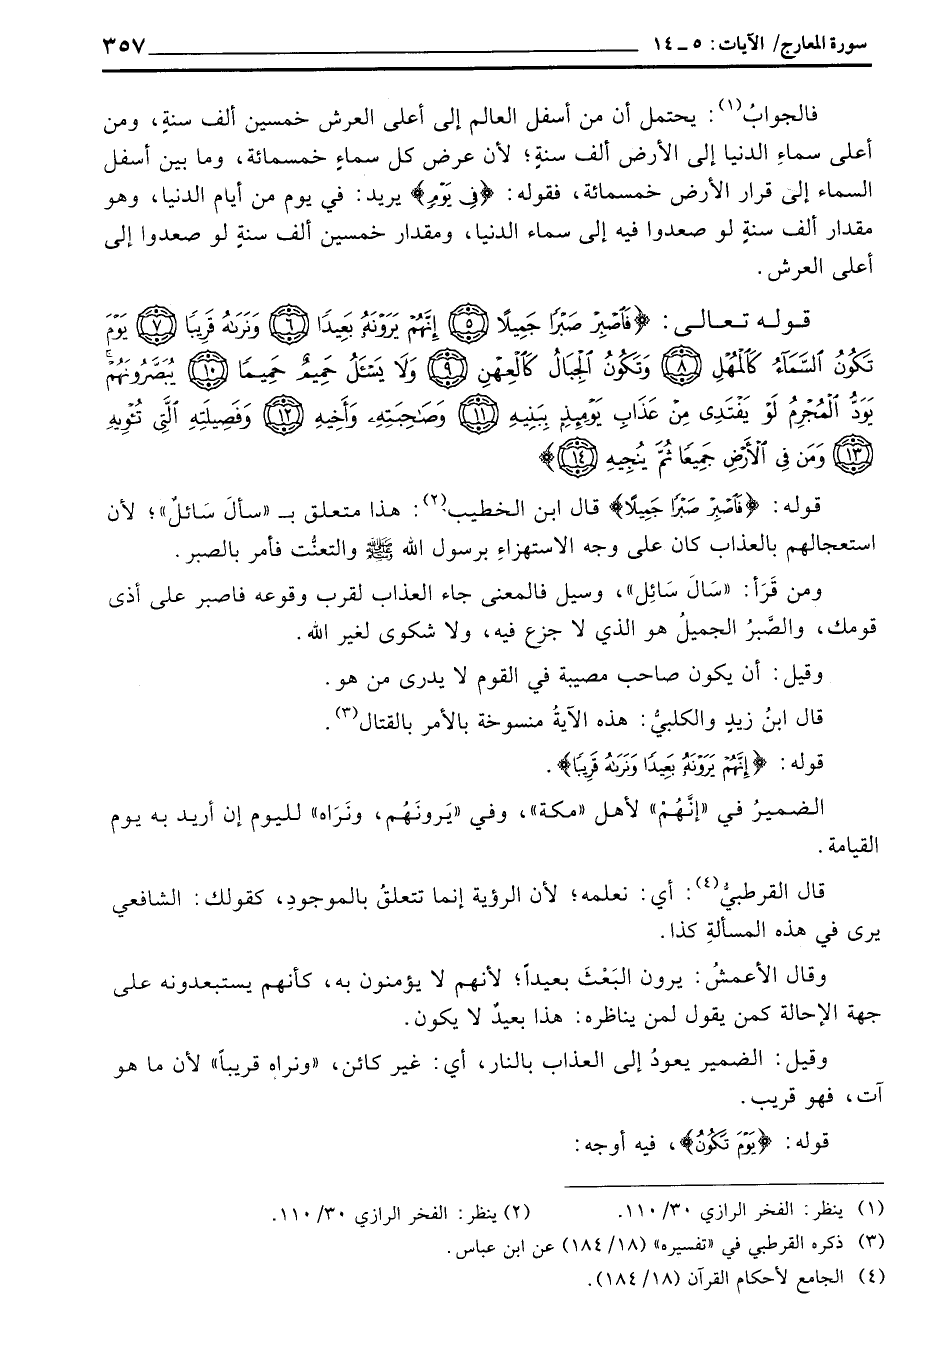 سورة المعارج/ الآيات: ٥ ـ ١٤ ٣٥٧
فالجوابُ(١): يحتمل أن من أسفل العالم إلى أعلى العرش خمسين ألف سنةٍ، ومن
أعلى سماءِ الدنيا إلى الأرض ألف سنةٍ؛ لأن عرض كل سماءٍ خمسمائة، وما بين أسفل
السماء إلى قرار الأرض خمسمائة، فقوله: ﴿فِي يَوْمٍ﴾ يريد: في يوم من أيام الدنيا، وهو
مقدار ألف سنةٍ لو صعدوا فيه إلى سماء الدنيا، ومقدار خمسين ألف سنةٍ لو صعدوا إلى
أعلى العرش.
قوله تعالى: ﴿فَٱصْبِرْ صَبْرًا جَمِيلًا ﴿٥﴾ إِنَّهُمْ يَرَوْنَهُۥ بَعِيدًا ﴿٦﴾ وَنَرَىٰهُ قَرِيبًا ﴿٧﴾ يَوْمَ
تَكُونُ ٱلسَّمَآءُ كَٱلْمُهْلِ ﴿٨﴾ وَتَكُونُ ٱلْجِبَالُ كَٱلْعِهْنِ ﴿٩﴾ وَلَا يَسْـَٔلُ حَمِيمٌ حَمِيمًا ﴿١٠﴾ يُبَصَّرُونَهُمْ ۚ
يَوَدُّ ٱلْمُجْرِمُ لَوْ يَفْتَدِى مِنْ عَذَابِ يَوْمِئِذٍۭ بِبَنِيهِ ﴿١١﴾ وَصَٰحِبَتِهِۦ وَأَخِيهِ ﴿١٢﴾ وَفَصِيلَتِهِ ٱلَّتِى تُـْٔوِيهِ
﴿١٣﴾ وَمَن فِى ٱلْأَرْضِ جَمِيعًا ثُمَّ يُنجِيهِ ﴿١٤﴾﴾
قوله: ﴿فَٱصْبِرْ صَبْرًا جَمِيلًا﴾ قال ابن الخطيب(٢): هذا متعلق بـ «سألَ سَائلٌ»؛ لأن
استعجالهم بالعذاب كان على وجه الاستهزاءِ برسول الله ﷺ والتعنُّت فأمر بالصبر.
ومن قَرَأ: «سَالَ سَائِل»، وسيل فالمعنى جاء العذاب لقرب وقوعه فاصبر على أذى
قومك، والصَّبرُ الجميلُ هو الذي لا جزع فيه، ولا شكوى لغير الله.
وقيل: أن يكون صاحب مصيبة في القوم لا يدرى من هو.
قال ابنُ زيدٍ والكلبيُّ: هذه الآيةُ منسوخة بالأمر بالقتال(٣).
قوله: ﴿إِنَّهُمْ يَرَوْنَهُۥ بَعِيدًا وَنَرَىٰهُ قَرِيبًا﴾.
الضميرُ في «إنَّهُمْ» لأهل «مكة»، وفي «يَرونَهُم، ونَرَاه» لليوم إن أريد به يوم
القيامة.
قال القرطبيُّ(٤): أي: نعلمه؛ لأن الرؤية إنما تتعلقُ بالموجودِ، كقولك: الشافعي
يرى في هذه المسألةِ كذا.
وقال الأعمشُ: يرون البَعْثَ بعيداً؛ لأنهم لا يؤمنون به، كأنهم يستبعدونه على
جهة الإحالة كمن يقول لمن يناظره: هذا بعيدٌ لا يكون.
وقيل: الضمير يعودُ إلى العذاب بالنار، أي: غير كائن، «ونراه قريباً» لأن ما هو
آت، فهو قريب.
قوله: ﴿يَوْمَ تَكُونُ﴾، فيه أوجه:
(١) ينظر: الفخر الرازي ٣٠/ ١١٠. (٢) ينظر: الفخر الرازي ٣٠/ ١١٠.
(٣) ذكره القرطبي في «تفسيره» (١٨/ ١٨٤) عن ابن عباس.
(٤) الجامع لأحكام القرآن (١٨/ ١٨٤).